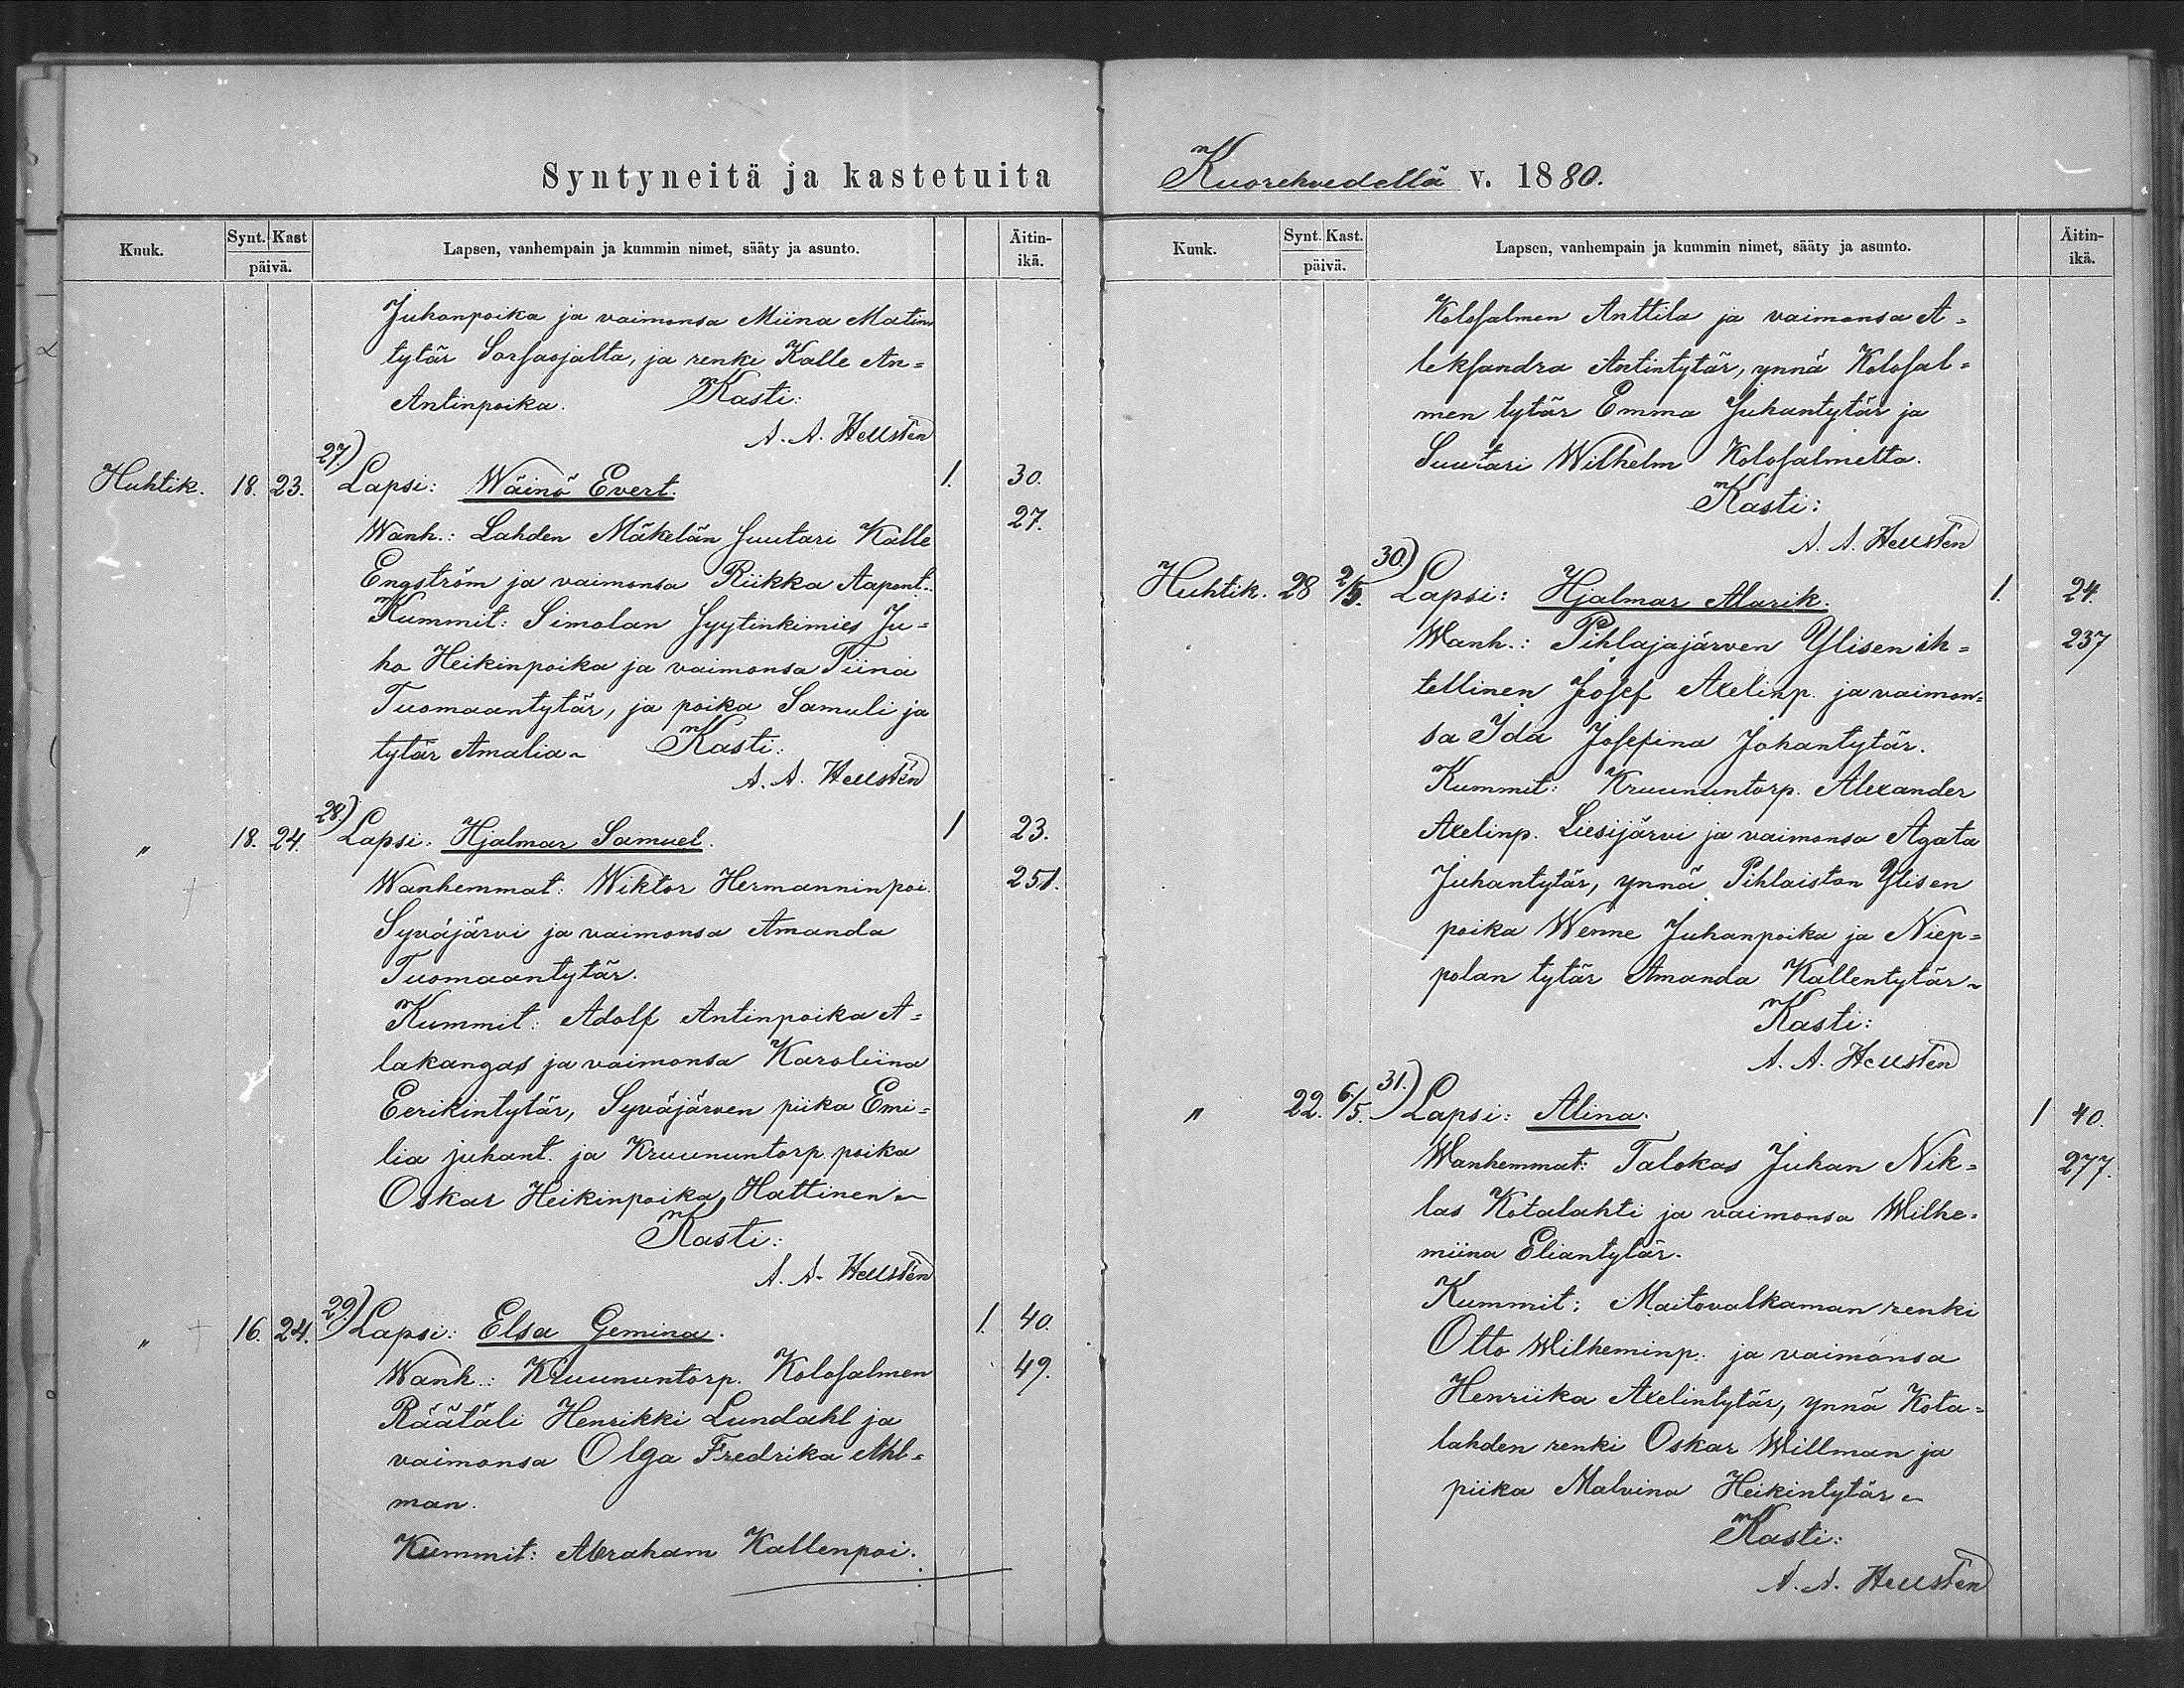 Syntyneitä ja kastetuita
Kuuk. Synt. Kast päivä. Lapsen, vanhempain ja kummin nimet, sääty ja asunto. Äitin-ikä.
Juhonpoika ja vaimonsa Miina Matin
tytär Sorsaojalta, ja renki Kalle An=
Antinpoika. Kasti:
A. A. Hellsten
Huhtik. 18. 23. 27.) Lapsi: Wäinö Evert. 1. 30.
Wanh.: Lahden Mäkelän Suutari Kalle 27.
Engström ja vaimonsa Riikka Aapont.
Kummit: Simolan Syytinkimies Ju=
ho Heikinpoika ja vaimonsa Tiina
Tuomaantytär, ja poika Samuli ja
tytär Amalia Kasti:
A. A. Hellsten
" 18. 24. 28.) Lapsi: Hjalmar Samuel. 1 23.
Wanhemmat: Wiktor Hermanninpoi. 251.
Syväjärvi ja vaimonsa Amanda
Tuomaantytär.
Kummit: Adolf Antinpoika A=
lakangas ja vaimonsa Karoliina
Eerikintytär, Syväjärven piika Emi=
lia juhant. ja Kruununtorp. poika
Oskar Heikinpoika Hattinen
Kasti:
A. A. Hellsten
" 16. 24. 29.) Lapsi: Elsa Gemina. 1. 40.
Wanh.: Kruununtorp. Kolosalmen 49.
Räätäli Henrikki Lundahl ja
vaimonsa Olga Fredrika Ahl=
man.
Kummit: Abraham Kallenpoi.
Kuorehvedellä v. 1880.
Kuuk. Synt. Kast. päivä. Lapsen, vanhempain ja kummin nimet, sääty ja asunto. Äitin-ikä.
Kolosalmen Anttila ja vaimonsa A=
leksandra Antintytär, ynnä Kolosal=
men tytär Emma Juhantytär ja
Suutari Wilhelm Kolosalmelta.
Kasti:
A. A. Hellsten
Huhtik. 28 2/5. 30.) Lapsi: Hjalmar Alarik. 1. 24.
Wanh.: Pihlajajärven Ylisen it= 237
tellinen Josef Axelinp. ja vaimon=
sa Ida Josefina Johantytär.
Kummit: Kruununtorp. Alexander
Axelinp. Liesijärvi ja vaimonsa Agata
Juhantytär, ynnä Pihlaiston Ylisen
poika Wenne Juhanpoika ja Niep=
polan tytär Amanda Kallentytär
Kasti:
A. A. Hellsten
" 22. 6/5. 31.) Lapsi: Alina. 1 40.
Wanhemmat: Talokas Juhan Nik= 277.
las Kotalahti ja vaimonsa Wilhe=
miina Eliantytär.
Kummit: Maitovalkaman renki
Otto Wilheminp. ja vaimonsa
Henriika Axelintytär, ynnä Kota=
lahden renki Oskar Willman ja
piika Malvina Heikintytär
Kasti:
A. A. Hellsten